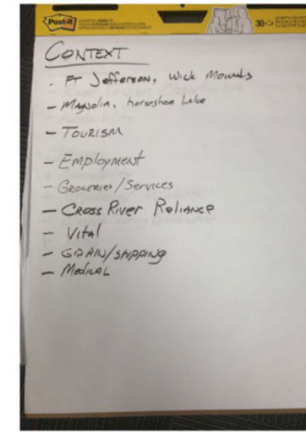 Post-it
30
CONTEXT
· FT Jefferson, Wick Mounds
- Magnolia, horseshoe Lake
- TOURISM
- Employment
- Groceries/Services
- CROSS RIVER RELIANCE
- Vital
- GRAIN/SHIPPING
- Medical